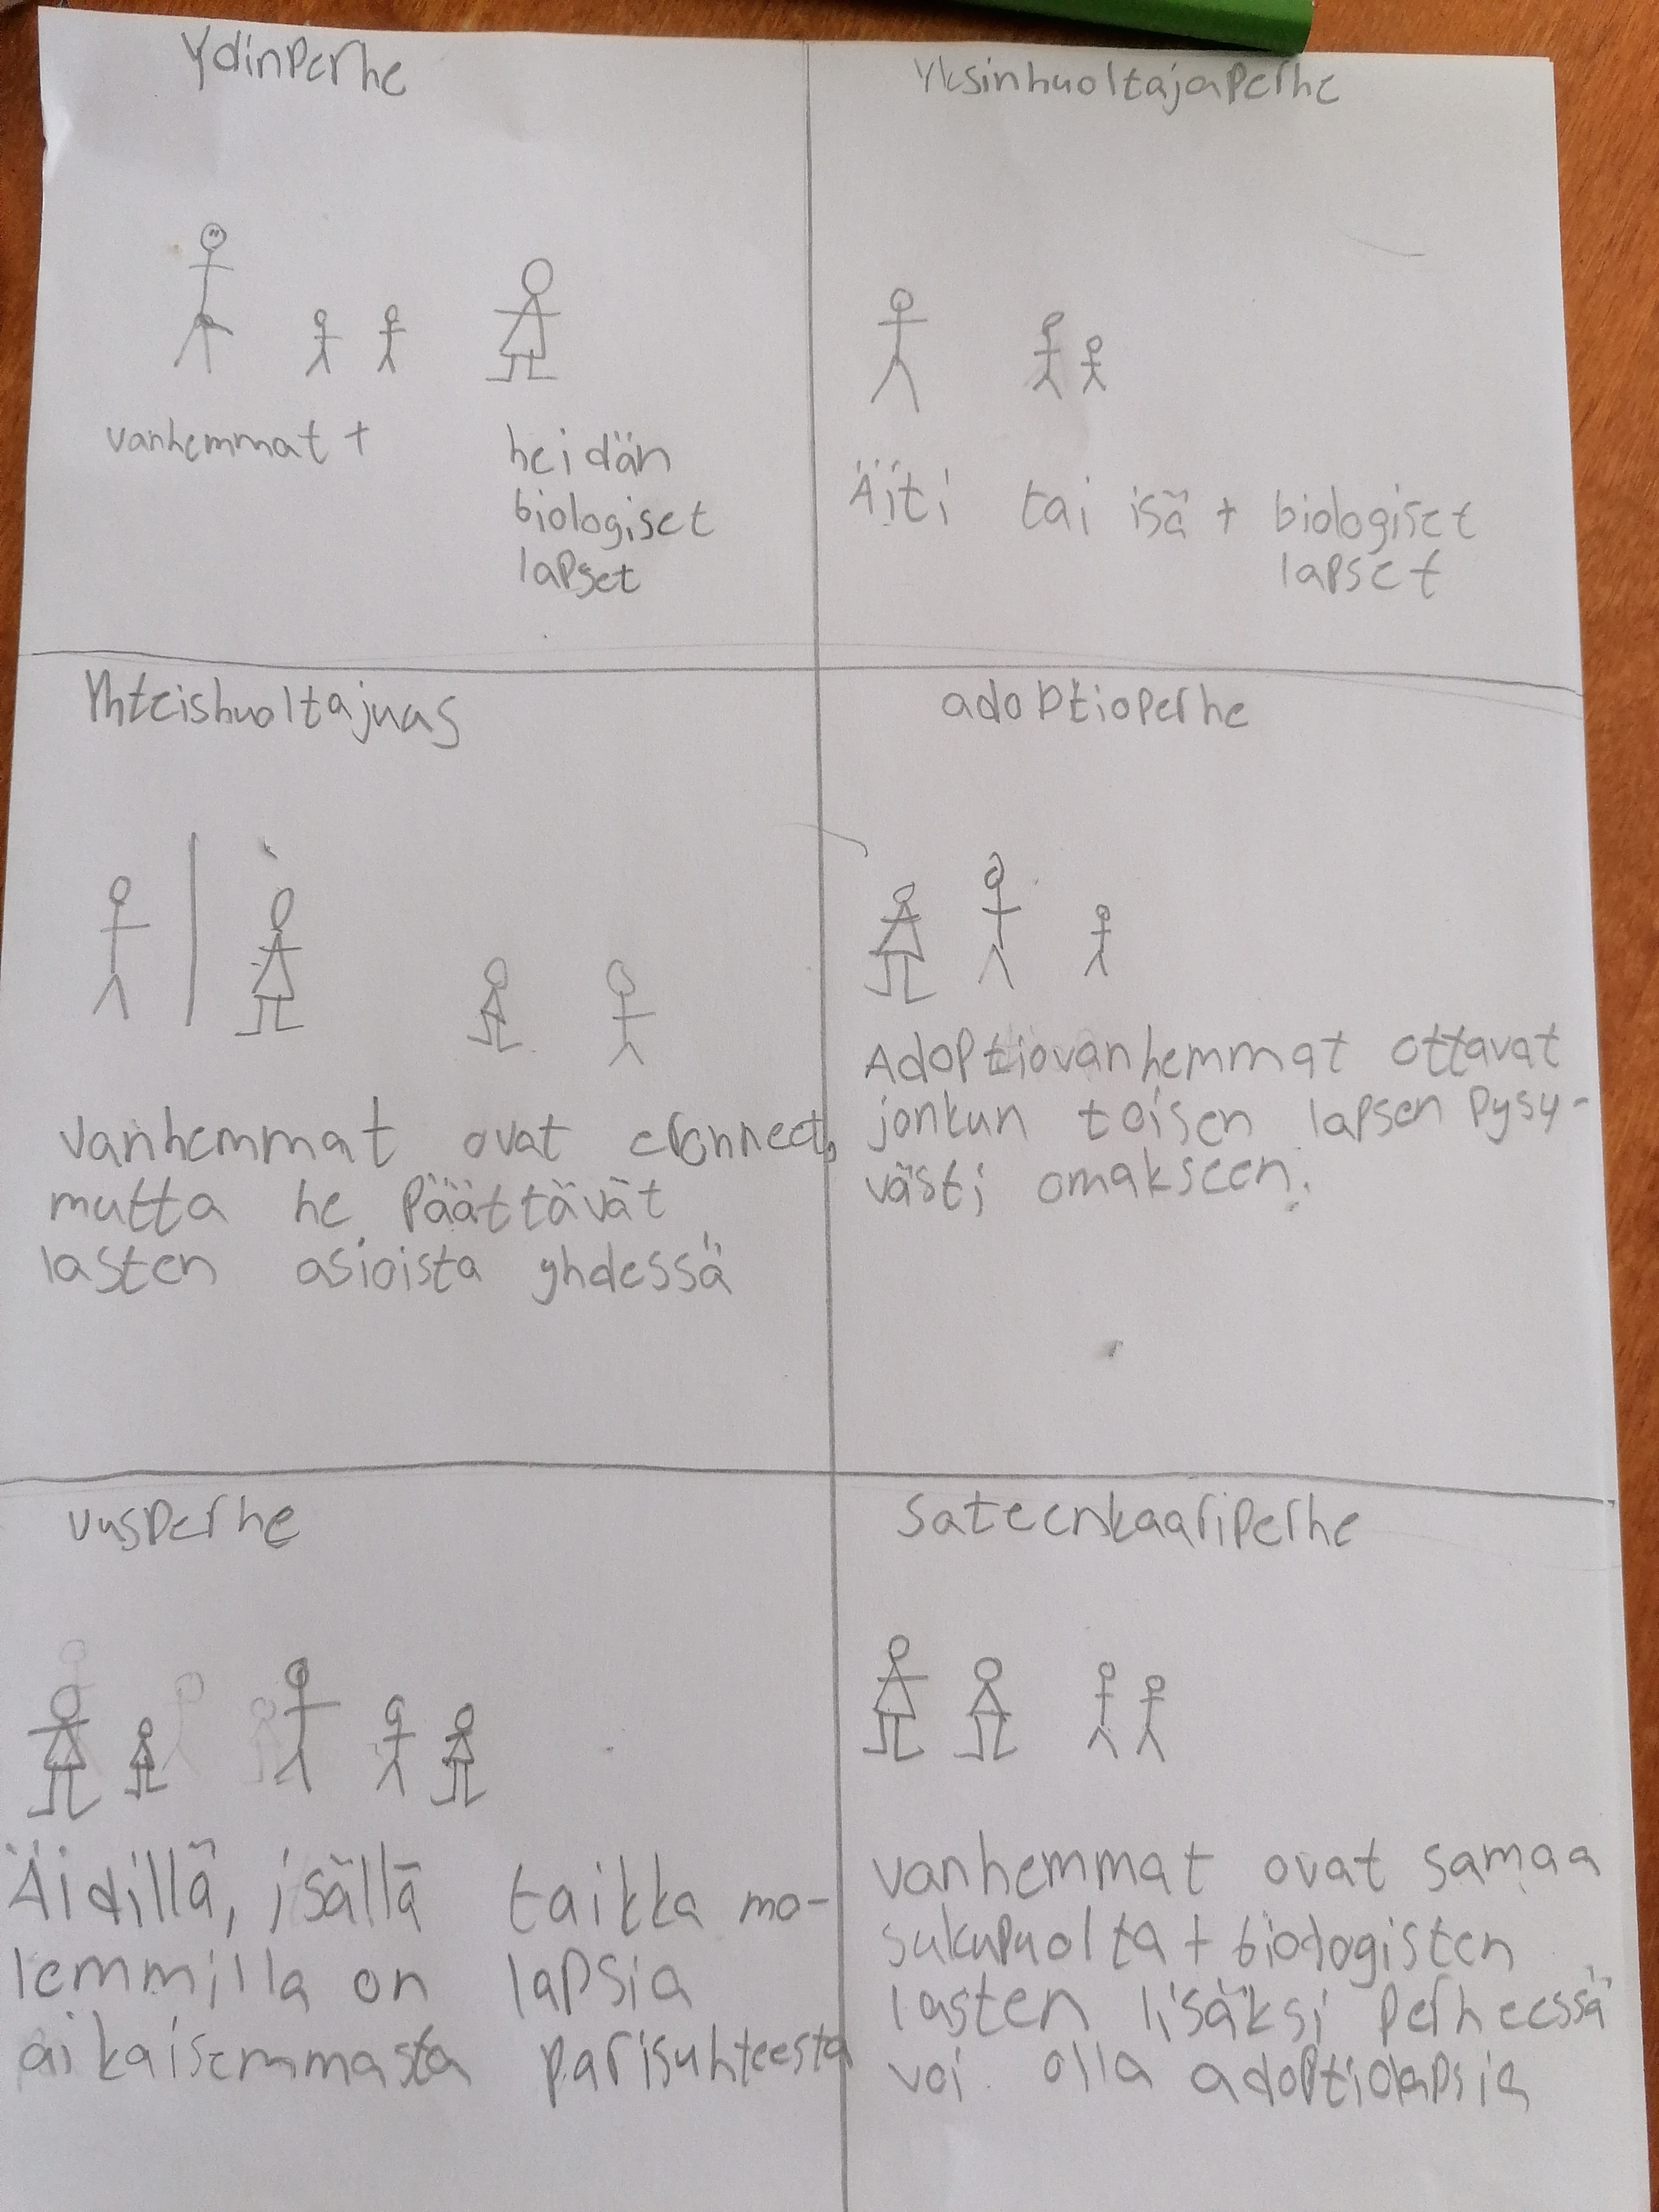 Ydinperhe
vanhemmat +
heidän
biologiset
lapset
Yksinhuoltajaperhe
Äiti tai isä + biologiset
lapset
Yhteishuoltajuas
vanhemmat ovat eronneet,
mutta he päättävät
lasten asioista yhdessä
adoptioperhe
Adoptiovanhemmat ottavat
jonkun toisen lapsen pysy-
västi omakseen.
uusperhe
Äidillä, isällä taikka mo-
lemmilla on lapsia
aikaisemmasta parisuhteesta
Sateenkaariperhe
vanhemmat ovat samaa
sukupuolta + biologisten
lasten lisäksi perheessä
voi olla adoptiolapsia